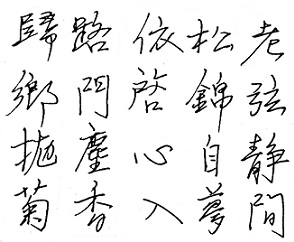 歸路依松老
鄉門啓錦弦
抛塵心自静
菊香入夢間